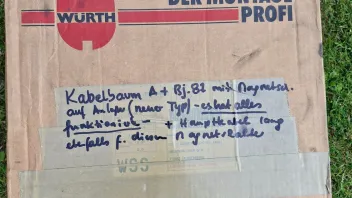 DER MONTAGE
PROFI
WÜRTH
Kabelbaum A + Bj. 82 mit Magnetsch.
auf Anlasser (neuer Typ) - es hat alles
funktioniert - + Hauptkabel lang
ebenfalls f. diesen Magnetschalter
WSS